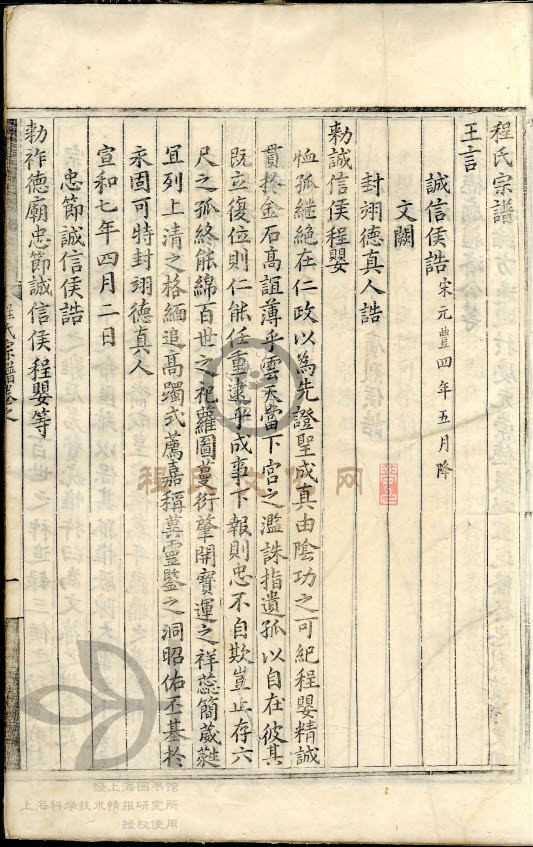 程氏宗譜
王言
誠信侯誥 宋元豐四年五月降
文闕
封翊德真人誥
勑誠信侯程嬰
恤孤繼絕在仁政以為先證聖成真由陰功之可紀程嬰精誠
貫於金石高誼薄乎雲天當下宮之濫誅指遺孤以自在彼其
既立復位則仁能任重逮乎成事下報則忠不自欺豈止存六
尺之孤終能綿百世之祀蘿圖蔓衍肇開寶運之祥蕊簡葳蕤
宜列上清之格緬追高躅式薦嘉稱冀靈鑒之洞昭佑丕基於
永固可特封翊德真人
宣和七年四月二日
忠節誠信侯誥
勑祚德廟忠節誠信侯程嬰等
程氏宗譜卷之
一
程氏文化网
经上海图书馆
上海科学技术情报研究所
授权使用